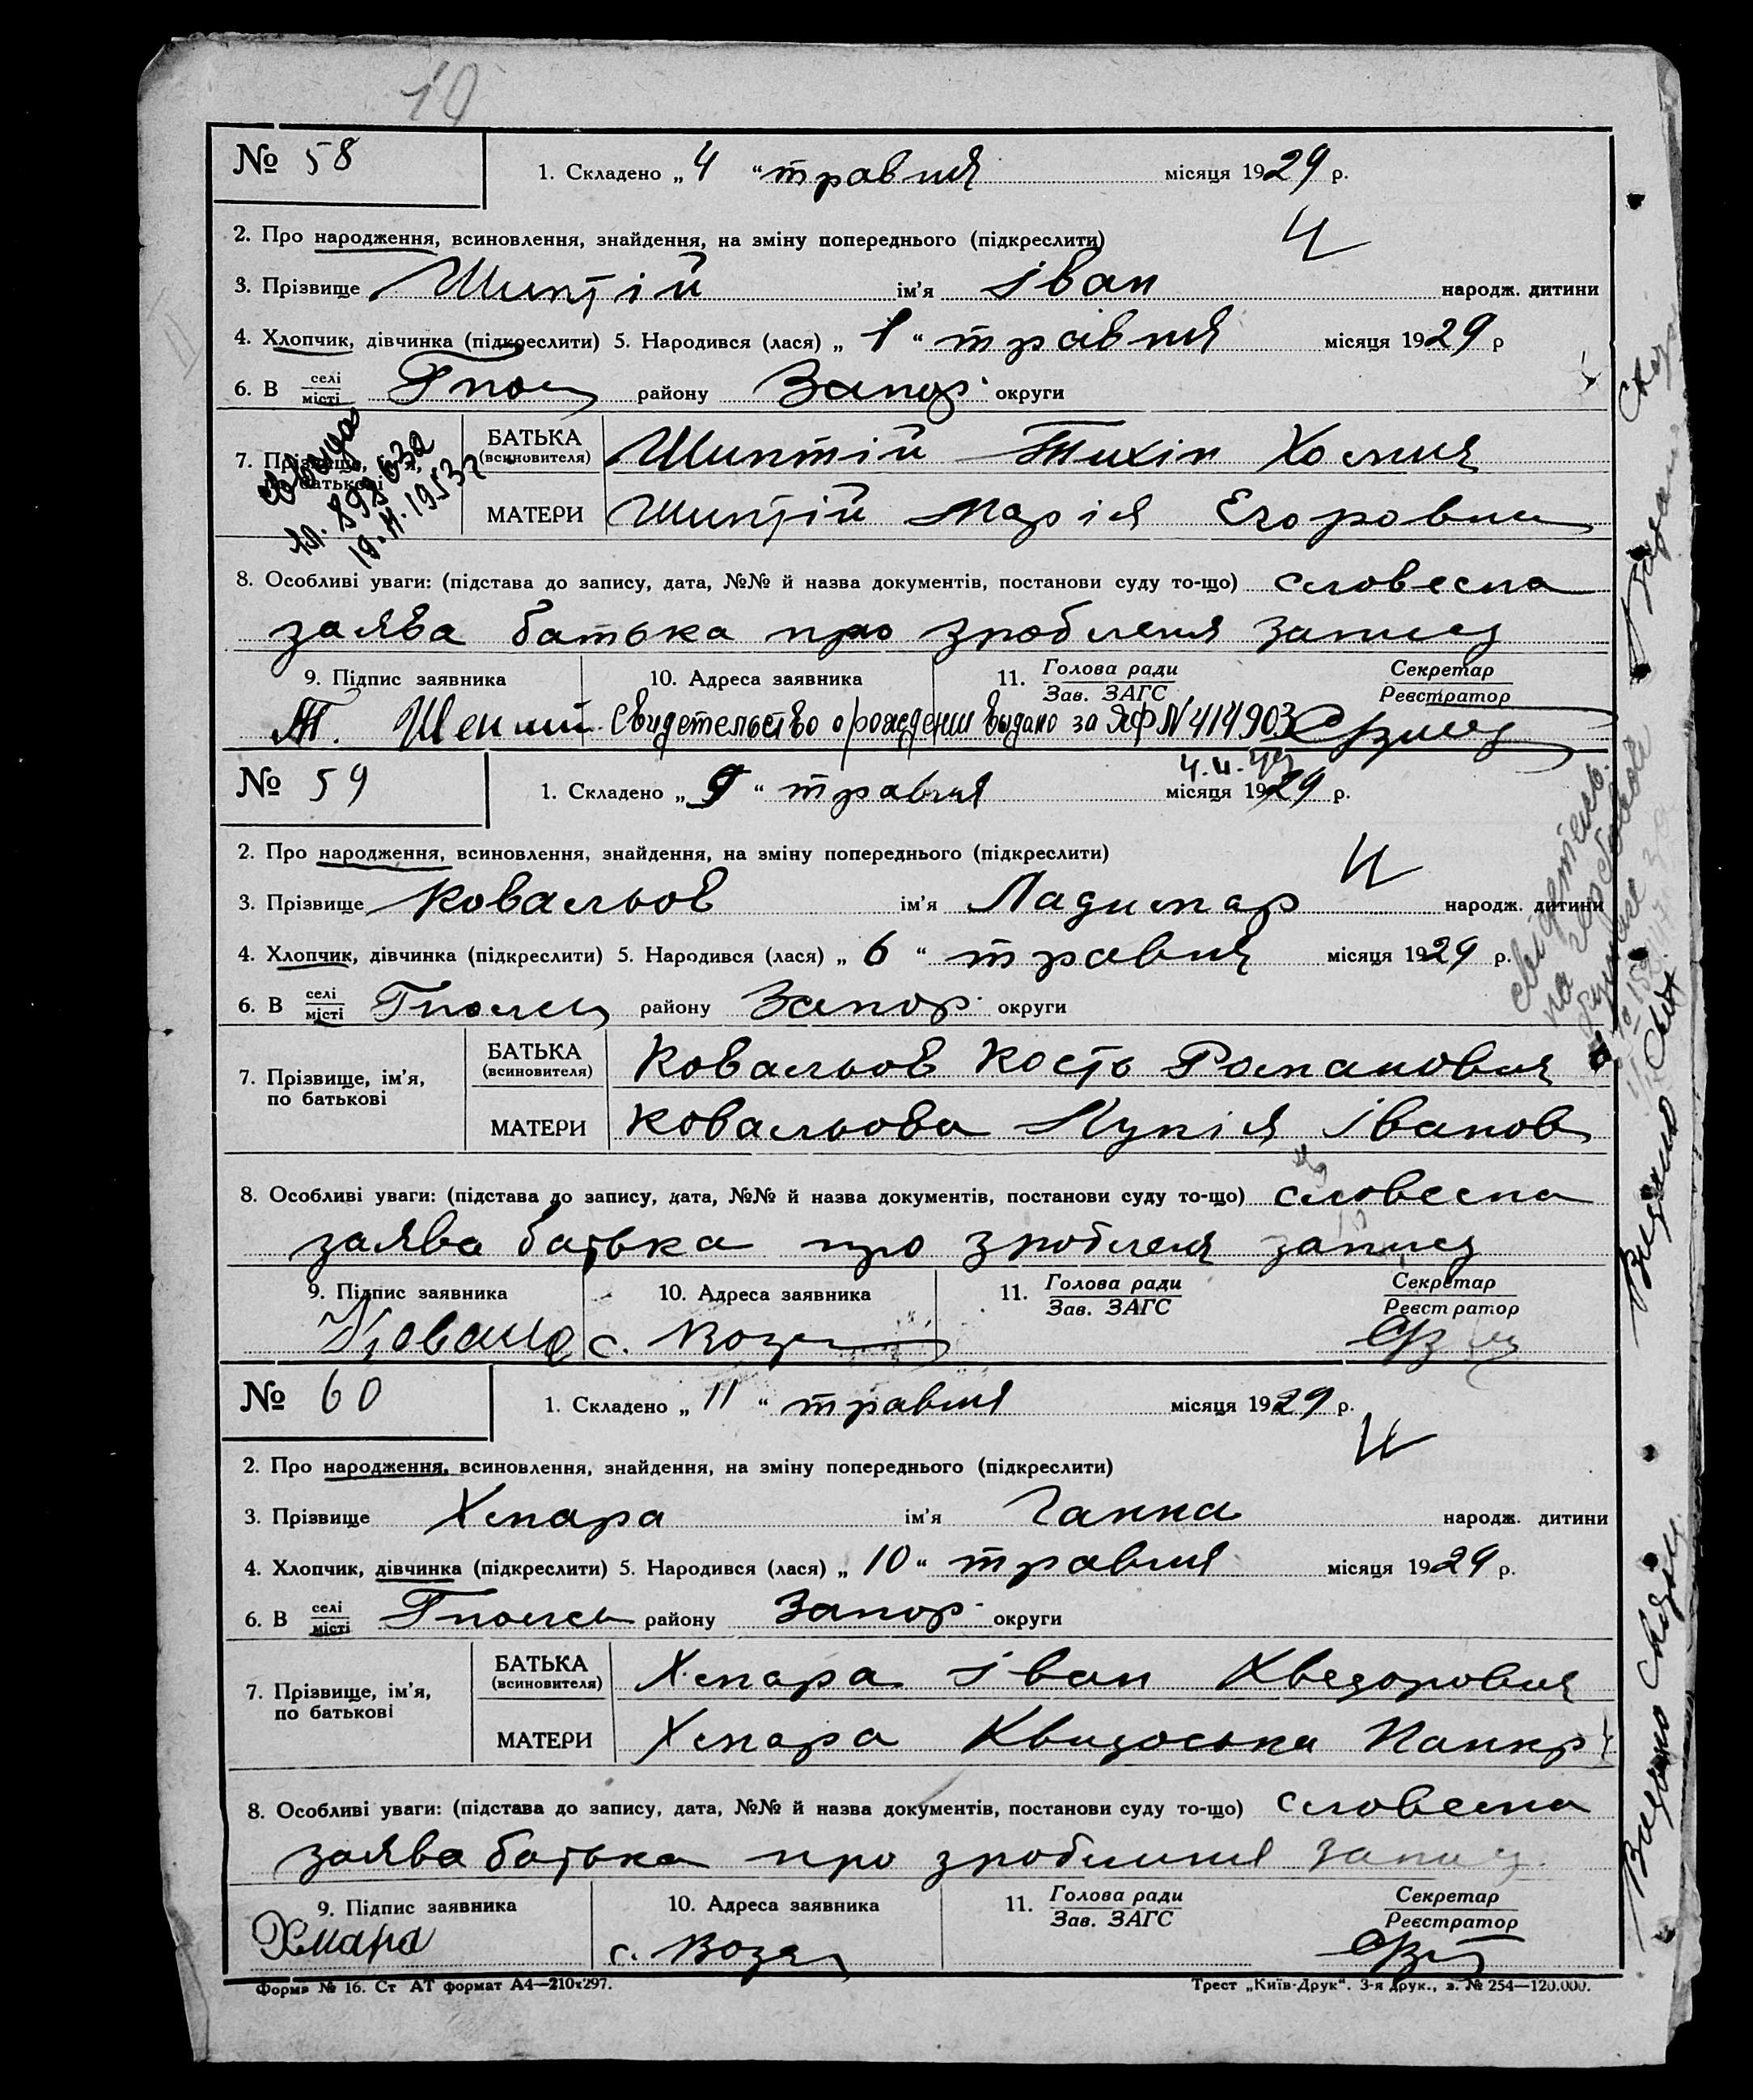 10
№ 58
1. Складено „ 4 “ травня місяця 1929 р.
2. Про народження, всиновлення, знайдення, на зміну попереднього (підкреслити)
3. Прізвище Шиптій ім'я Іван народж. дитини
4. Хлопчик, дівчинка (підкреслити) 5. Народився (лася) „ 1 “ травня місяця 1929 р
6. В селі місті району Запор. округи
7. Прізвище, ім'я, по батькові
БАТЬКА (всиновителя) Шиптій Тихін Хомич
МАТЕРИ Шиптій Марія Егоровна
8. Особливі уваги: (підстава до запису, дата, №№ й назва документів, постанови суду то-що) словесна
заява батька про зроблення запису
9. Підпис заявника 10. Адреса заявника 11. Голова ради Зав. ЗАГС Секретар Реєстратор
Т. Свидетельство о рождении выдано за ЯФ № 414903
№ 59
1. Складено „ 9 “ травня місяця 1929 р.
2. Про народження, всиновлення, знайдення, на зміну попереднього (підкреслити)
3. Прізвище Ковальов ім'я Ладимар народж. дитини
4. Хлопчик, дівчинка (підкреслити) 5. Народився (лася) „ 6 “ травня місяця 1929 р.
6. В селі місті району Запор. округи
7. Прізвище, ім'я, по батькові
БАТЬКА (всиновителя) Ковальов Кость Романович
МАТЕРИ Ковальова Іванов
8. Особливі уваги: (підстава до запису, дата, №№ й назва документів, постанови суду то-що) словесна
заява батька про зроблення запису
9. Підпис заявника 10. Адреса заявника 11. Голова ради Зав. ЗАГС Секретар Реєстратор
с.
№ 60
1. Складено „ 11 “ травня місяця 1929 р.
2. Про народження, всиновлення, знайдення, на зміну попереднього (підкреслити)
3. Прізвище Хмара ім'я Ганна народж. дитини
4. Хлопчик, дівчинка (підкреслити) 5. Народився (лася) „ 10 “ травня місяця 1929 р.
6. В селі місті району Запор. округи
7. Прізвище, ім'я, по батькові
БАТЬКА (всиновителя) Хмара Іван Хведорович
МАТЕРИ Хмара Панкр
8. Особливі уваги: (підстава до запису, дата, №№ й назва документів, постанови суду то-що) словесна
заява батька про зроблення запису
9. Підпис заявника 10. Адреса заявника 11. Голова ради Зав. ЗАГС Секретар Реєстратор
Хмара с.
Форма № 16. Ст АТ формат А4—210х297. Трест „Київ-Друк“. 3-я друк., з. № 254—120.000.